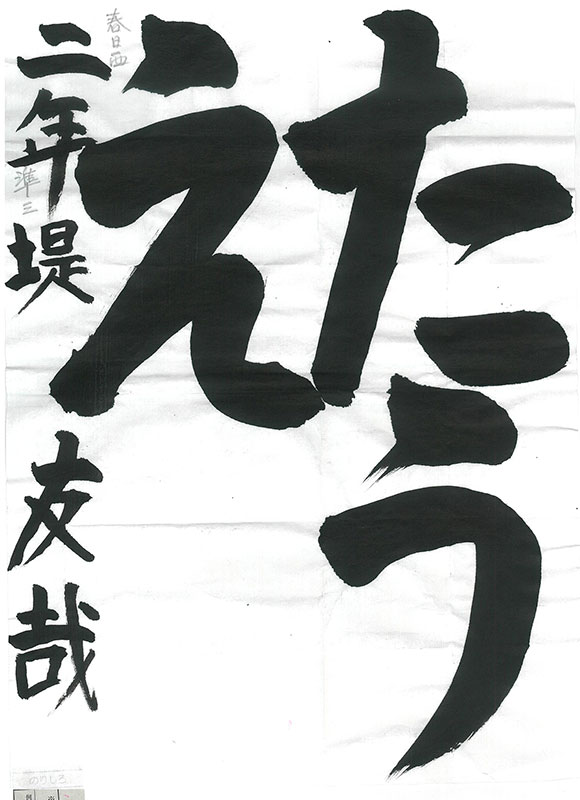 たう
え
春日西
準三
二年堤友哉
のりしろ